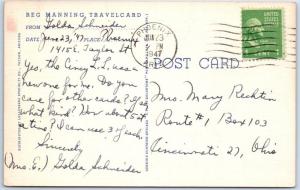 REG MANNING TRAVELCARD
FROM Golda Schneider
DATE June 23, '47 PLACE Phoenix
1915 E. Taylor St
Yes, the Cing L.L. is a
new one for me. Do you
care for other cards? If so,
what kind? How about 5 at
a time? I can use 3 of each.
Sincerely
(Mrs. E.) Golda Schneider
PHOENIX
JUN 23
PM
1947
ARIZ.
POST CARD
Mrs. Mary Rechtin
Route #1 Box 103
Cincinnati 27, Ohio